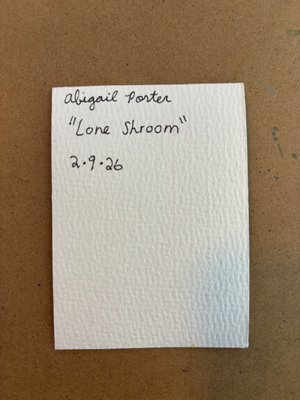 Abigail Porter
"Lone Shroom"
2.9.26